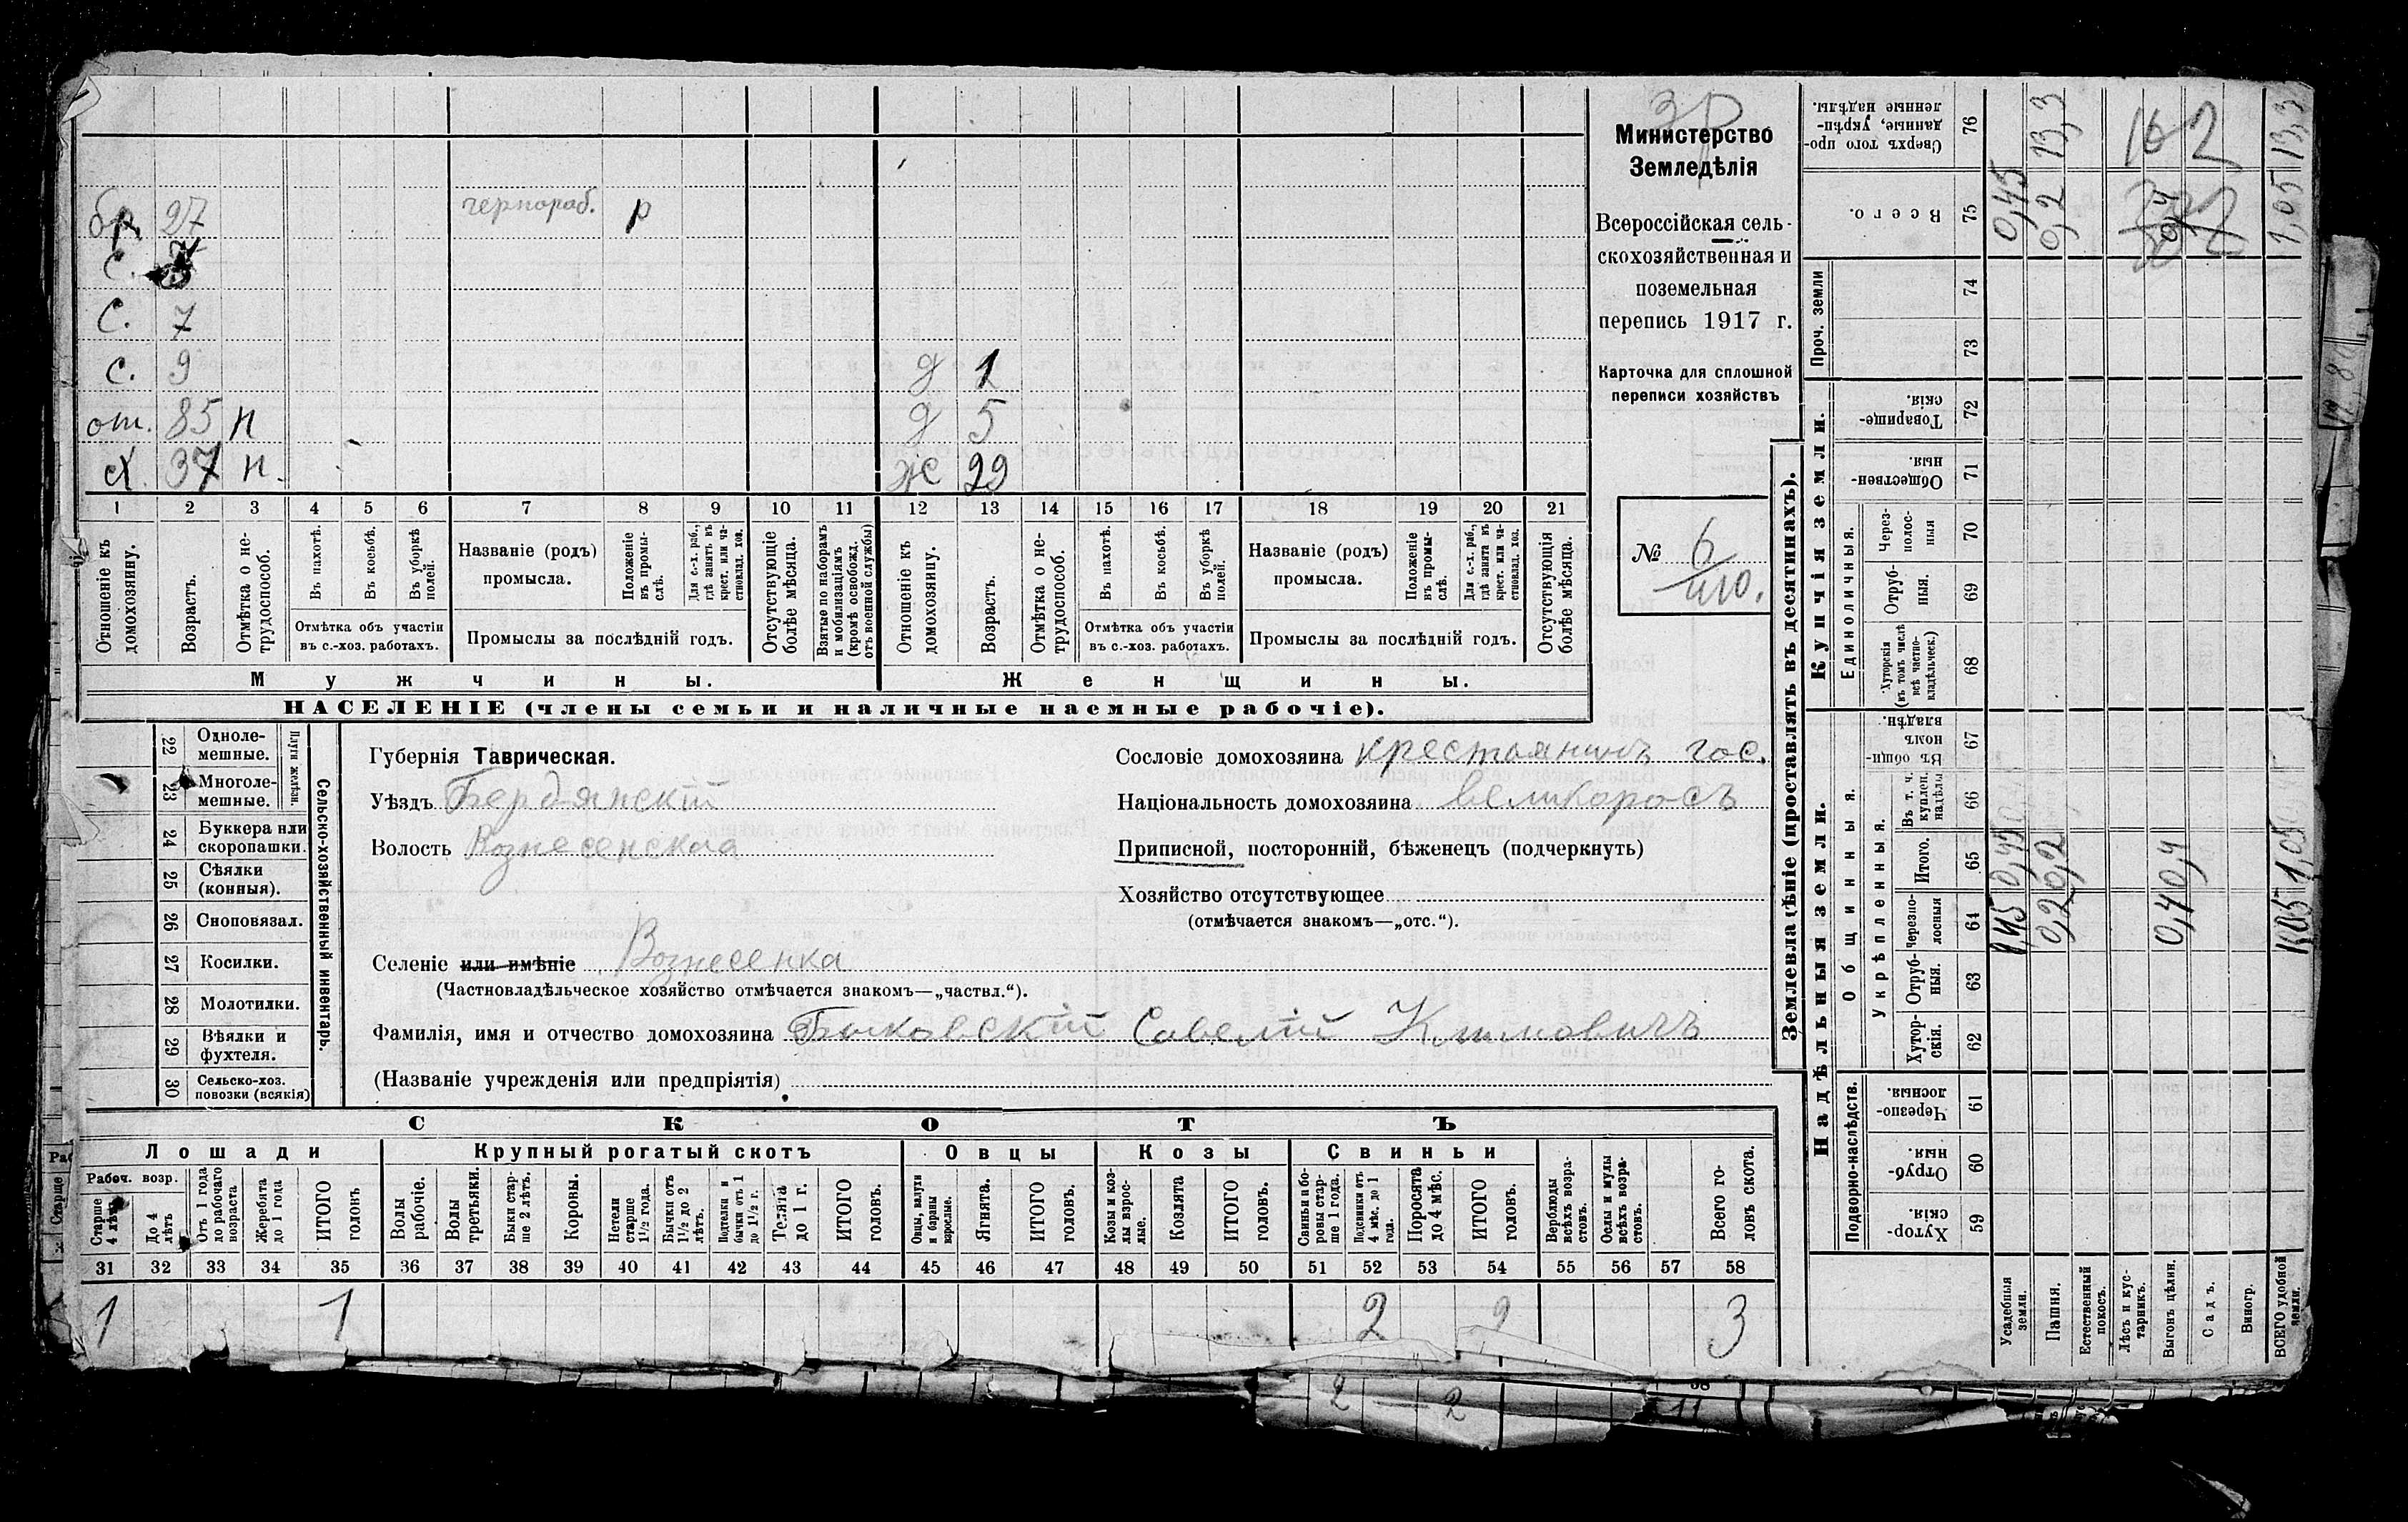 бр. 27 чернораб. р
с.
с. 7
с. 9 д 1
от. 85 н д 5
х. 37 н. ж 29
1 2 3 4 5 6 7 8 9 10 11 12 13 14 15 16 17 18 19 20 21
Отношеніе къ домохозяину.
Возрастъ.
Отмѣтка о нетрудоспособ.
Въ пахотѣ.
Въ косьбѣ.
Въ уборкѣ полей.
Отмѣтка объ участіи въ с.-хоз. работахъ.
Названіе (родъ) промысла.
Положеніе въ промыслѣ.
Для с.-х. раб., гдѣ занятъ въ крест. или частновлад. хоз.
Промыслы за послѣдній годъ.
Отсутствующіе болѣе мѣсяца.
Взятые по наборамъ и мобилизаціямъ (кромѣ освобожд. отъ военной службы)
Отношеніе къ домохозяину.
Возрастъ.
Отмѣтка о нетрудоспособ.
Въ пахотѣ.
Въ косьбѣ.
Въ уборкѣ полей.
Отмѣтка объ участіи въ с.-хоз. работахъ.
Названіе (родъ) промысла.
Положеніе въ промыслѣ.
Для с.-х. раб., гдѣ занята въ крест. или частновлад. хоз.
Промыслы за послѣдній годъ.
Отсутствующія болѣе мѣсяца.
Мужчины.
Женщины.
НАСЕЛЕНІЕ (члены семьи и наличные наемные рабочіе).
Министерство
Земледѣлія
Всероссійская сель-
скохозяйственная и
поземельная
перепись 1917 г.
Карточка для сплошной
переписи хозяйствъ
№ 6
22 Однолемешные.
23 Многолемешные.
Плуги желѣзн.
24 Буккера или скоропашки.
25 Сѣялки (конныя).
26 Сноповязал.
27 Косилки.
28 Молотилки.
29 Вѣялки и фухтеля.
30 Сельско-хоз. повозки (всякія)
Сельско-хозяйственный инвентарь.
Губернія Таврическая.
Уѣздъ Бердянскій
Волость Вознесенская
Селеніе или имѣніе Вознесенка
(Частновладѣльческое хозяйство отмѣчается знакомъ—„частвл.“).
Фамилія, имя и отчество домохозяина Быковскій Савелій Климовичъ
(Названіе учрежденія или предпріятія)
Сословіе домохозяина крестьянинъ гос.
Національность домохозяина великоросъ
Приписной, посторонній, бѣженецъ (подчеркнуть)
Хозяйство отсутствующее
(отмѣчается знакомъ—„отс.“).
СКОТЪ
Лошади
Крупный рогатый скотъ
Овцы
Козы
Свиньи
Рабоч. возр.
Старше 4 лѣтъ
До 4 лѣтъ
Отъ 1 года до рабочаго возраста
Жеребята до 1 года
ИТОГО головъ
Волы рабочіе.
Волы третьяки.
Быки старше 2 лѣтъ.
Коровы.
Нетели старше 1½ года.
Бычки отъ 1½ до 2 лѣтъ.
Подтелки и бычки отъ 1 до 1½ г.
Телята до 1 г.
ИТОГО головъ.
Овцы, валухи и бараны взрослые.
Ягнята.
ИТОГО головъ.
Козы и козлы взрослые.
Козлята
ИТОГО головъ.
Свиньи и боровы старше 1 года.
Подсвинки отъ 4 мѣс. до 1 года.
Поросята до 4 мѣс.
ИТОГО головъ.
Верблюды всѣхъ возрастовъ.
Ослы и мулы всѣхъ возрастовъ.
Всего головъ скота.
31 32 33 34 35 36 37 38 39 40 41 42 43 44 45 46 47 48 49 50 51 52 53 54 55 56 57 58
1 1 2 2 3
Землевладѣніе (проставлять въ десятинахъ).
Надѣльныя земли.
Купчія земли.
Проч. земли
Подворно-наслѣдств.
Общинныя.
Укрѣпленныя.
Единоличныя.
59 Хуторскія
60 Отрубныя.
61 Черезполосныя.
62 Хуторскія.
63 Отрубныя.
64 Черезполосныя
65 Итого.
66 Въ т. ч. куплен. надѣлы
67 Въ общинномъ владѣн.
68 Хуторскія (въ томъ числѣ всѣ частновладѣльческ.)
69 Отрубныя.
70 Черезполосныя
71 Общественныя.
72 Товарищескія.
73
74
75 Всего.
76 Сверхъ того проданные, укрѣпленные надѣлы.
Усадебныя земли. 0,45 0,45 0,45
Пашня. 0,2 0,2 0,2 13,3
Естественный покосъ.
Лѣсъ и кустарникъ.
Выгонъ цѣлин. 0,4 0,4 0,4
Садъ.
Виногр.
ВСЕГО удобной земли. 1,05 1,05 1,05 13,3
2 2
11